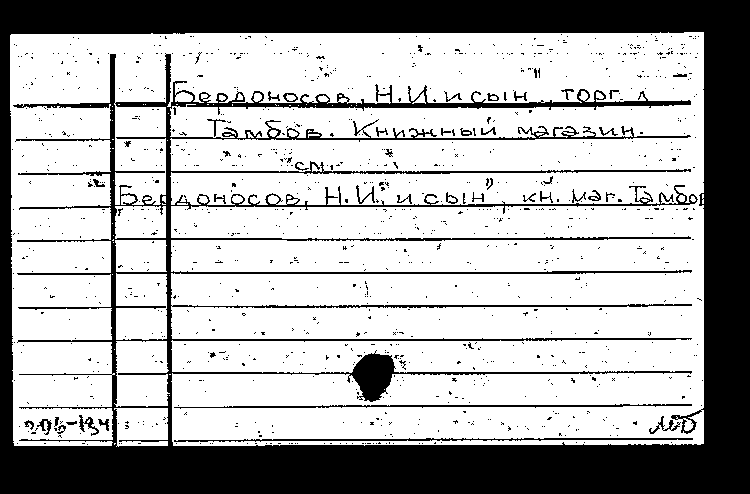 "Бердоносов, Н.И. и сын", торг. д.
Тамбов. Книжный магазин.
см.
"Бердоносов, Н.И. и сын", кн. маг. Тамбов
206-134